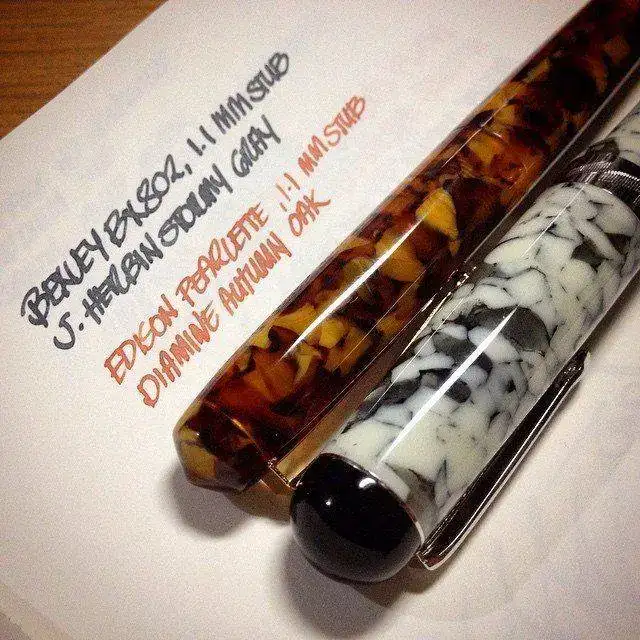 BEXLEY BX802, 1.1 MM STUB
J. HERBIN STORMY GRAY
EDISON PEARLETTE, 1.1 MM STUB
DIAMINE AUTUMN OAK